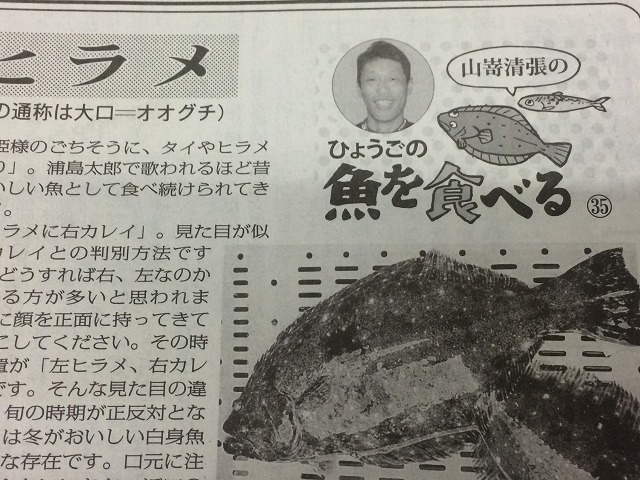 ヒラメ
の通称は大口＝オオグチ）
山嵜清張の
ひょうごの
魚を食べる
㉟
姫様のごちそうに、タイやヒラメ
り」。浦島太郎で歌われるほど昔
いしい魚として食べ続けられてき
。
ラメに右カレイ」。見た目が似
カレイとの判別方法です
どうすれば右、左なのか
る方が多いと思われま
に顔を正面に持ってきて
こしてください。その時
置が「左ヒラメ、右カレ
です。そんな見た目の違
旬の時期が正反対とな
は冬がおいしい白身魚
な存在です。口元に注